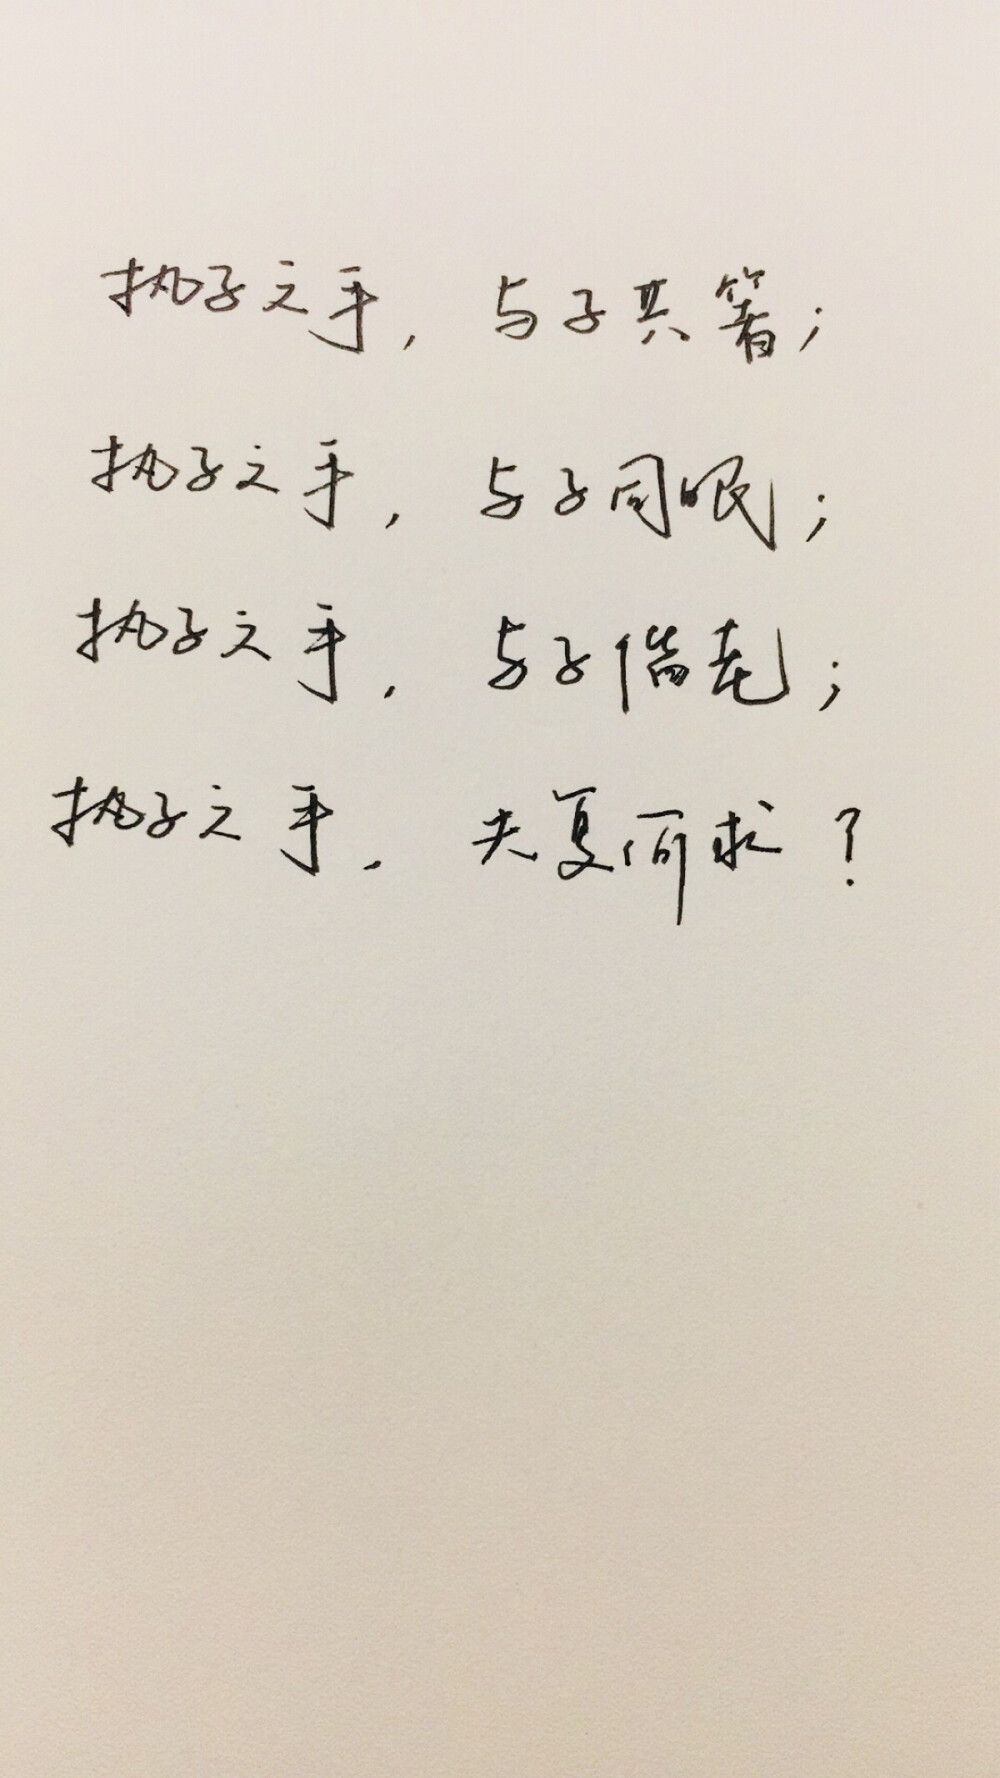 执子之手，与子共箸；
执子之手，与子同眠；
执子之手，与子偕老；
执子之手，夫复何求？